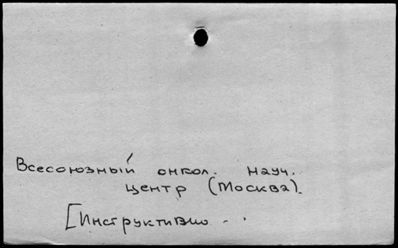 Всесоюзный онкол. науч.
центр (Москва).
[Инструктивно . .